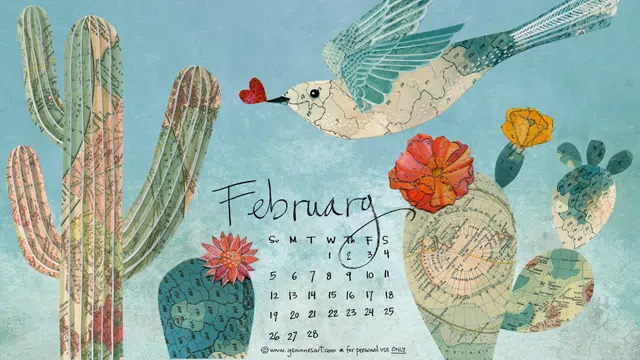 February
Su M T W Th F S
1 2 3 4
5 6 7 8 9 10 11
12 13 14 15 16 17 18
19 20 21 22 23 24 25
26 27 28
© www.geninnesart.com * for personal use ONLY